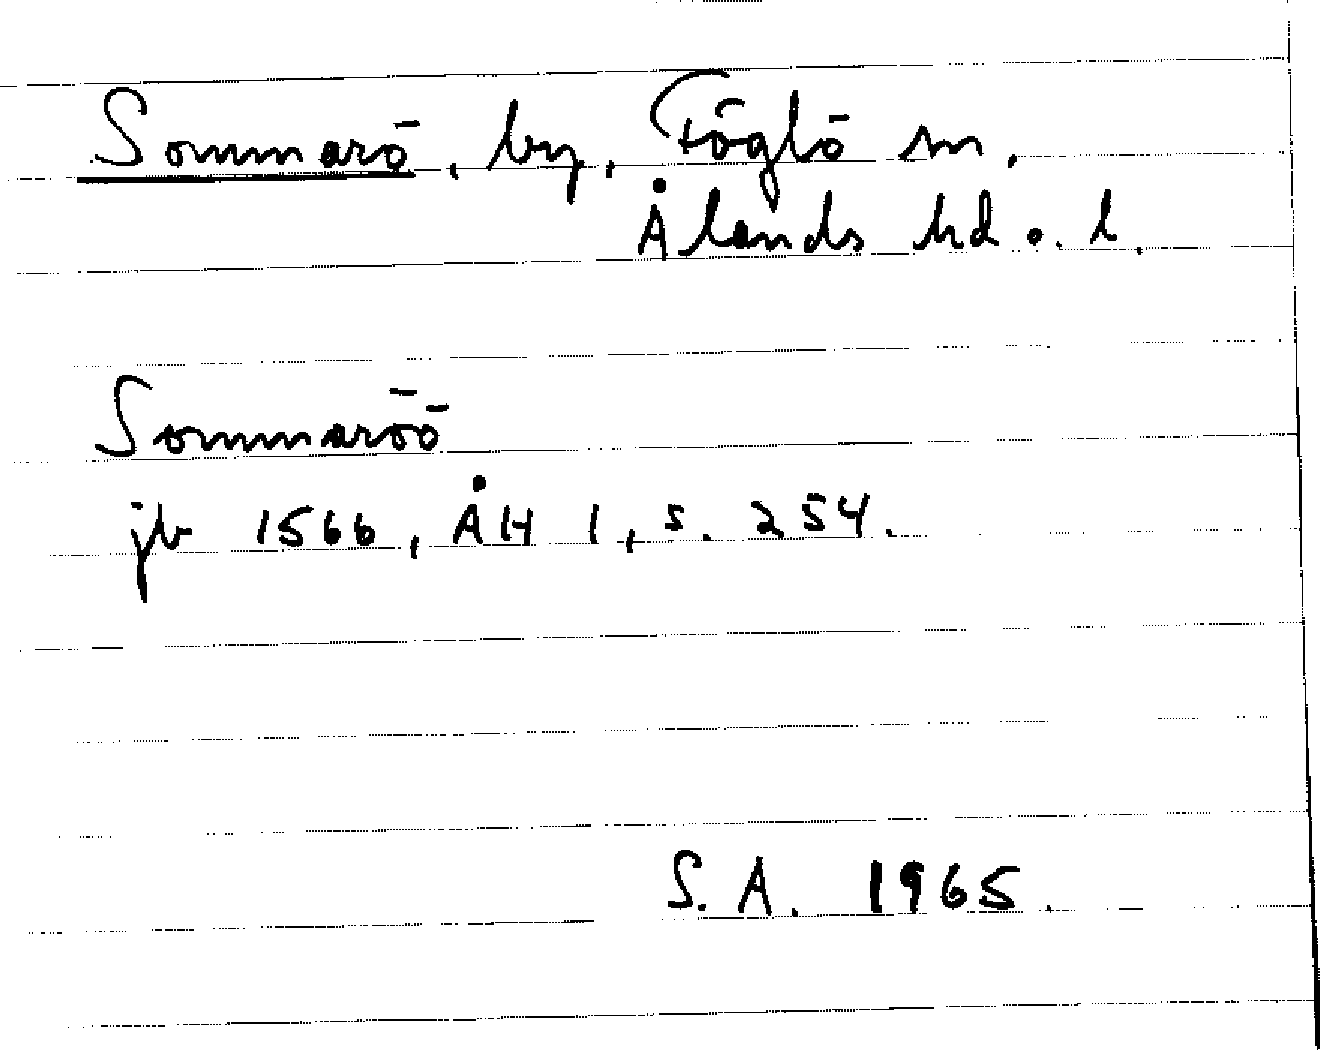 Sommarö, by, Föglö sn.
Ålands hd o. l.
Sommaröö
jb 1566, ÅH 1, s. 254.
S. A. 1965.